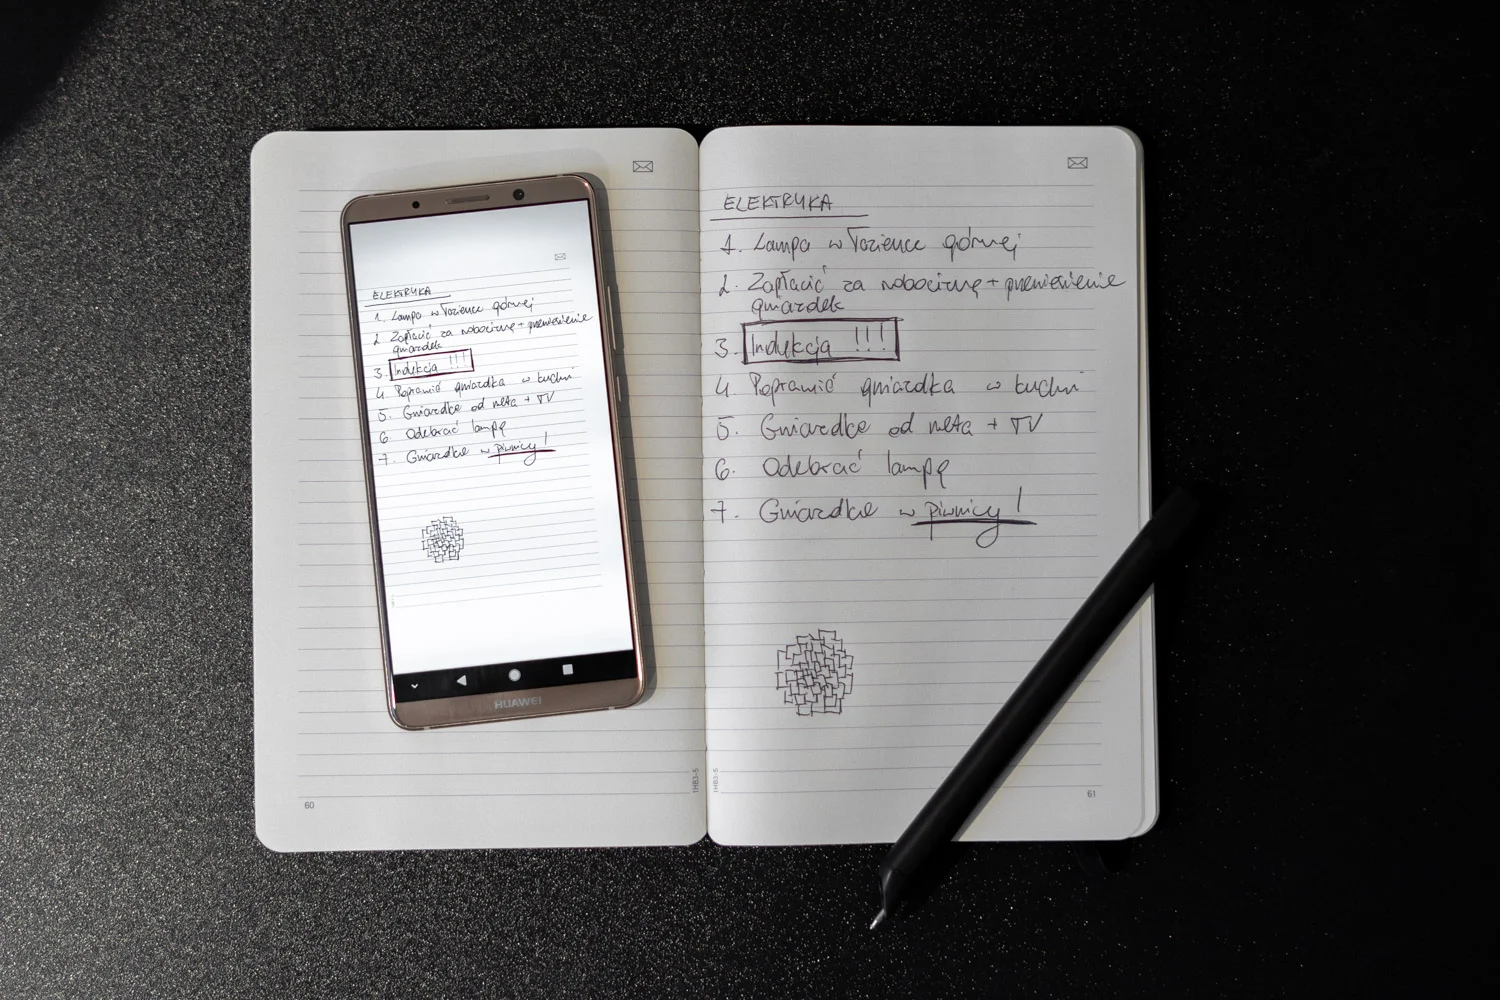 ELEKTRYKA
1. Lampa w łazience górnej
2. Zapłacić za robociznę + przeniesienie
gniazdek
3. Indukcja !!!
4. Poprawić gniazdka w kuchni
5. Gniazdke od neta + TV
6. Odebrać lampę
7. Gniazdke w piwnicy!
HUAWEI
60
1HB3-5
ELEKTRYKA
1. Lampa w łazience górnej
2. Zapłacić za robociznę + przeniesienie
gniazdek
3. Indukcja !!!
4. Poprawić gniazdka w kuchni
5. Gniazdke od neta + TV
6. Odebrać lampę
7. Gniazdke w piwnicy!
1HB3-5
61